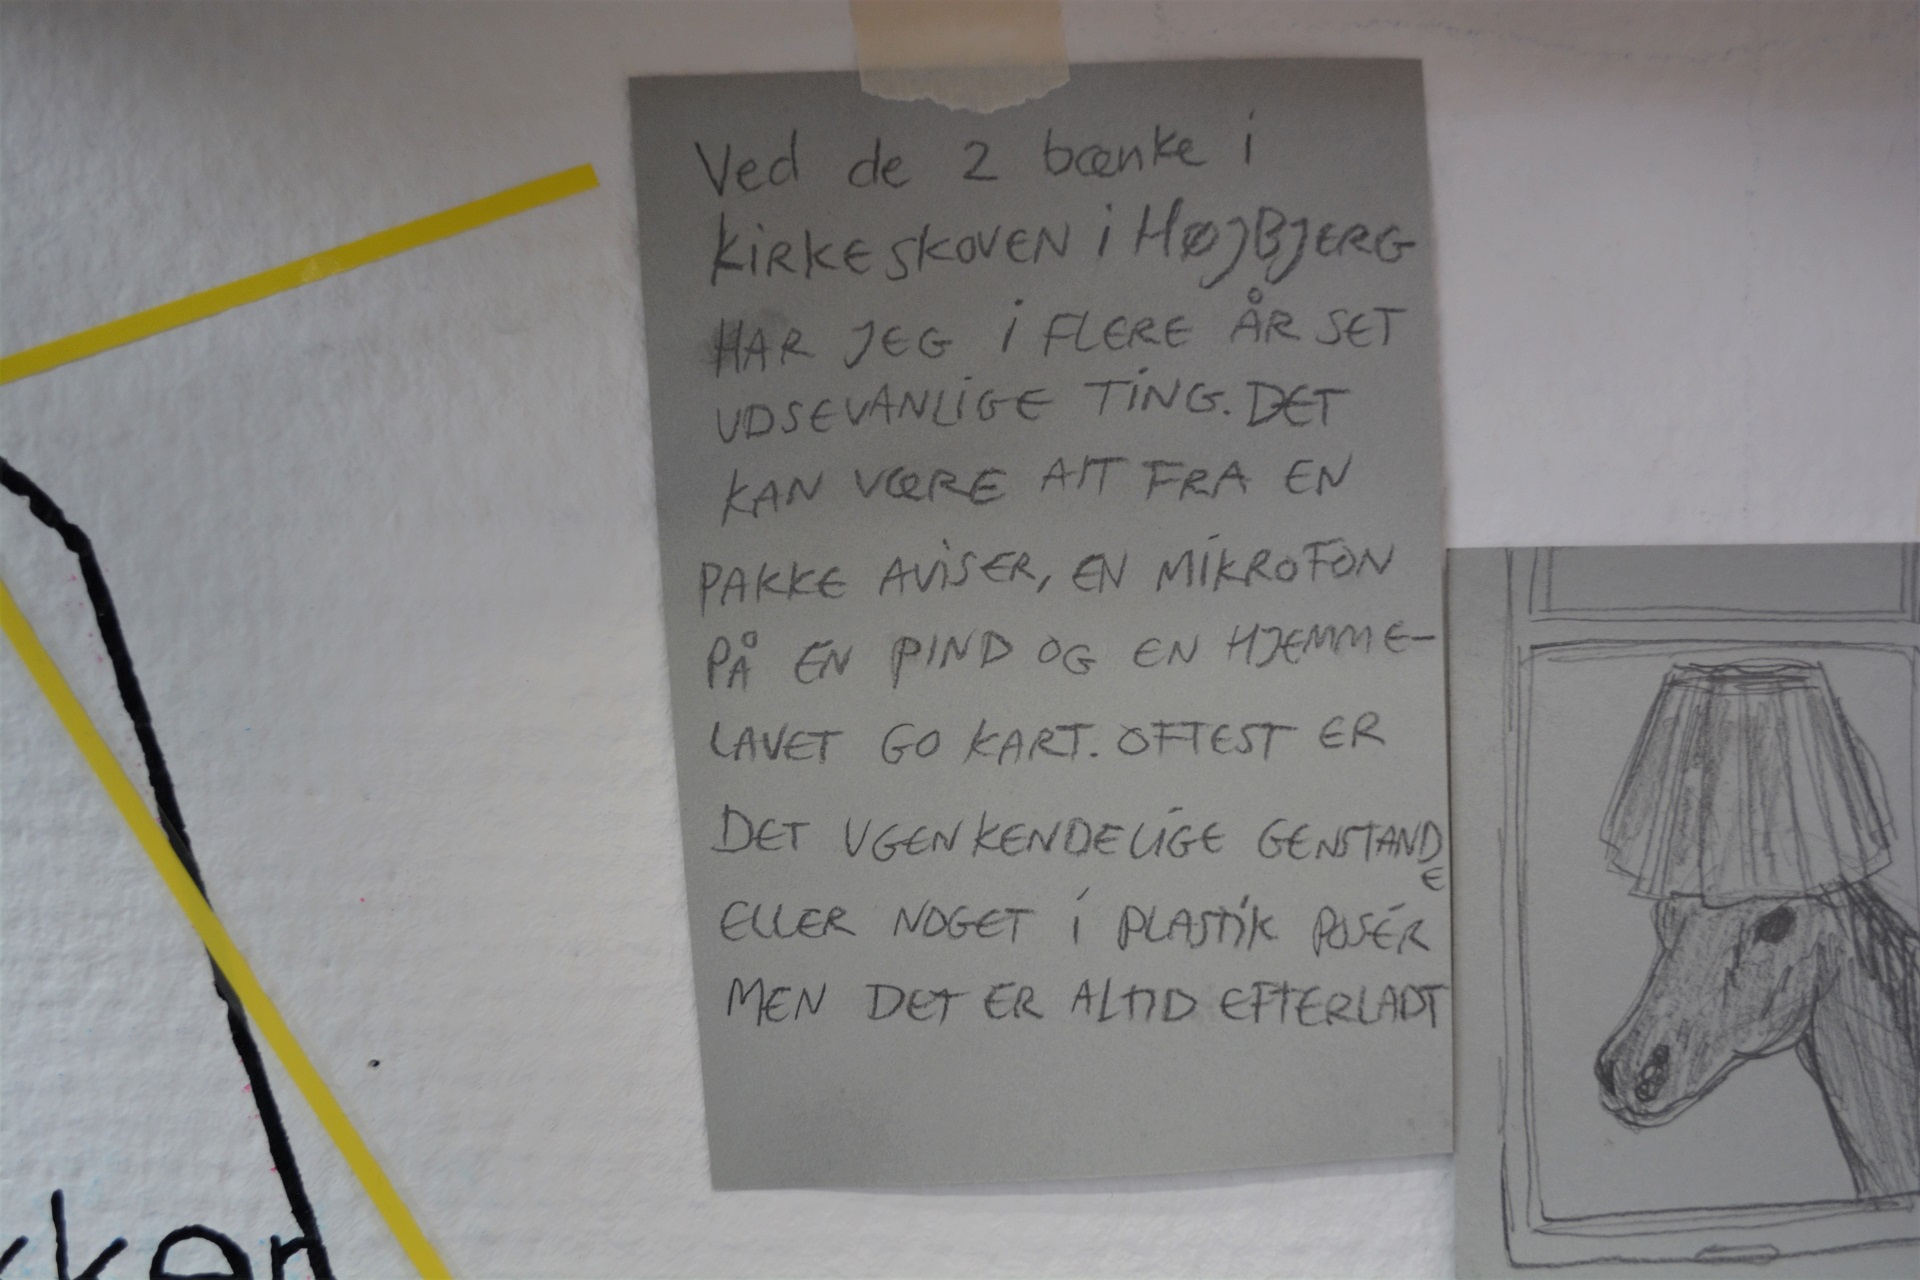 Ved de 2 bænke i
KIRKESKOVEN i HØJBJERG
HAR JEG I FLERE ÅR SET
UDSEVANLIGE TING. DET
KAN VÆRE ALT FRA EN
PAKKE AVISER, EN MIKROFON
PÅ EN PIND OG EN HJEMME-
LAVET GO KART. OFTEST ER
DET UGENKENDELIGE GENSTANDE
ELLER NOGET I PLASTIK POSER
MEN DET ER ALTID EFTERLADT
kken